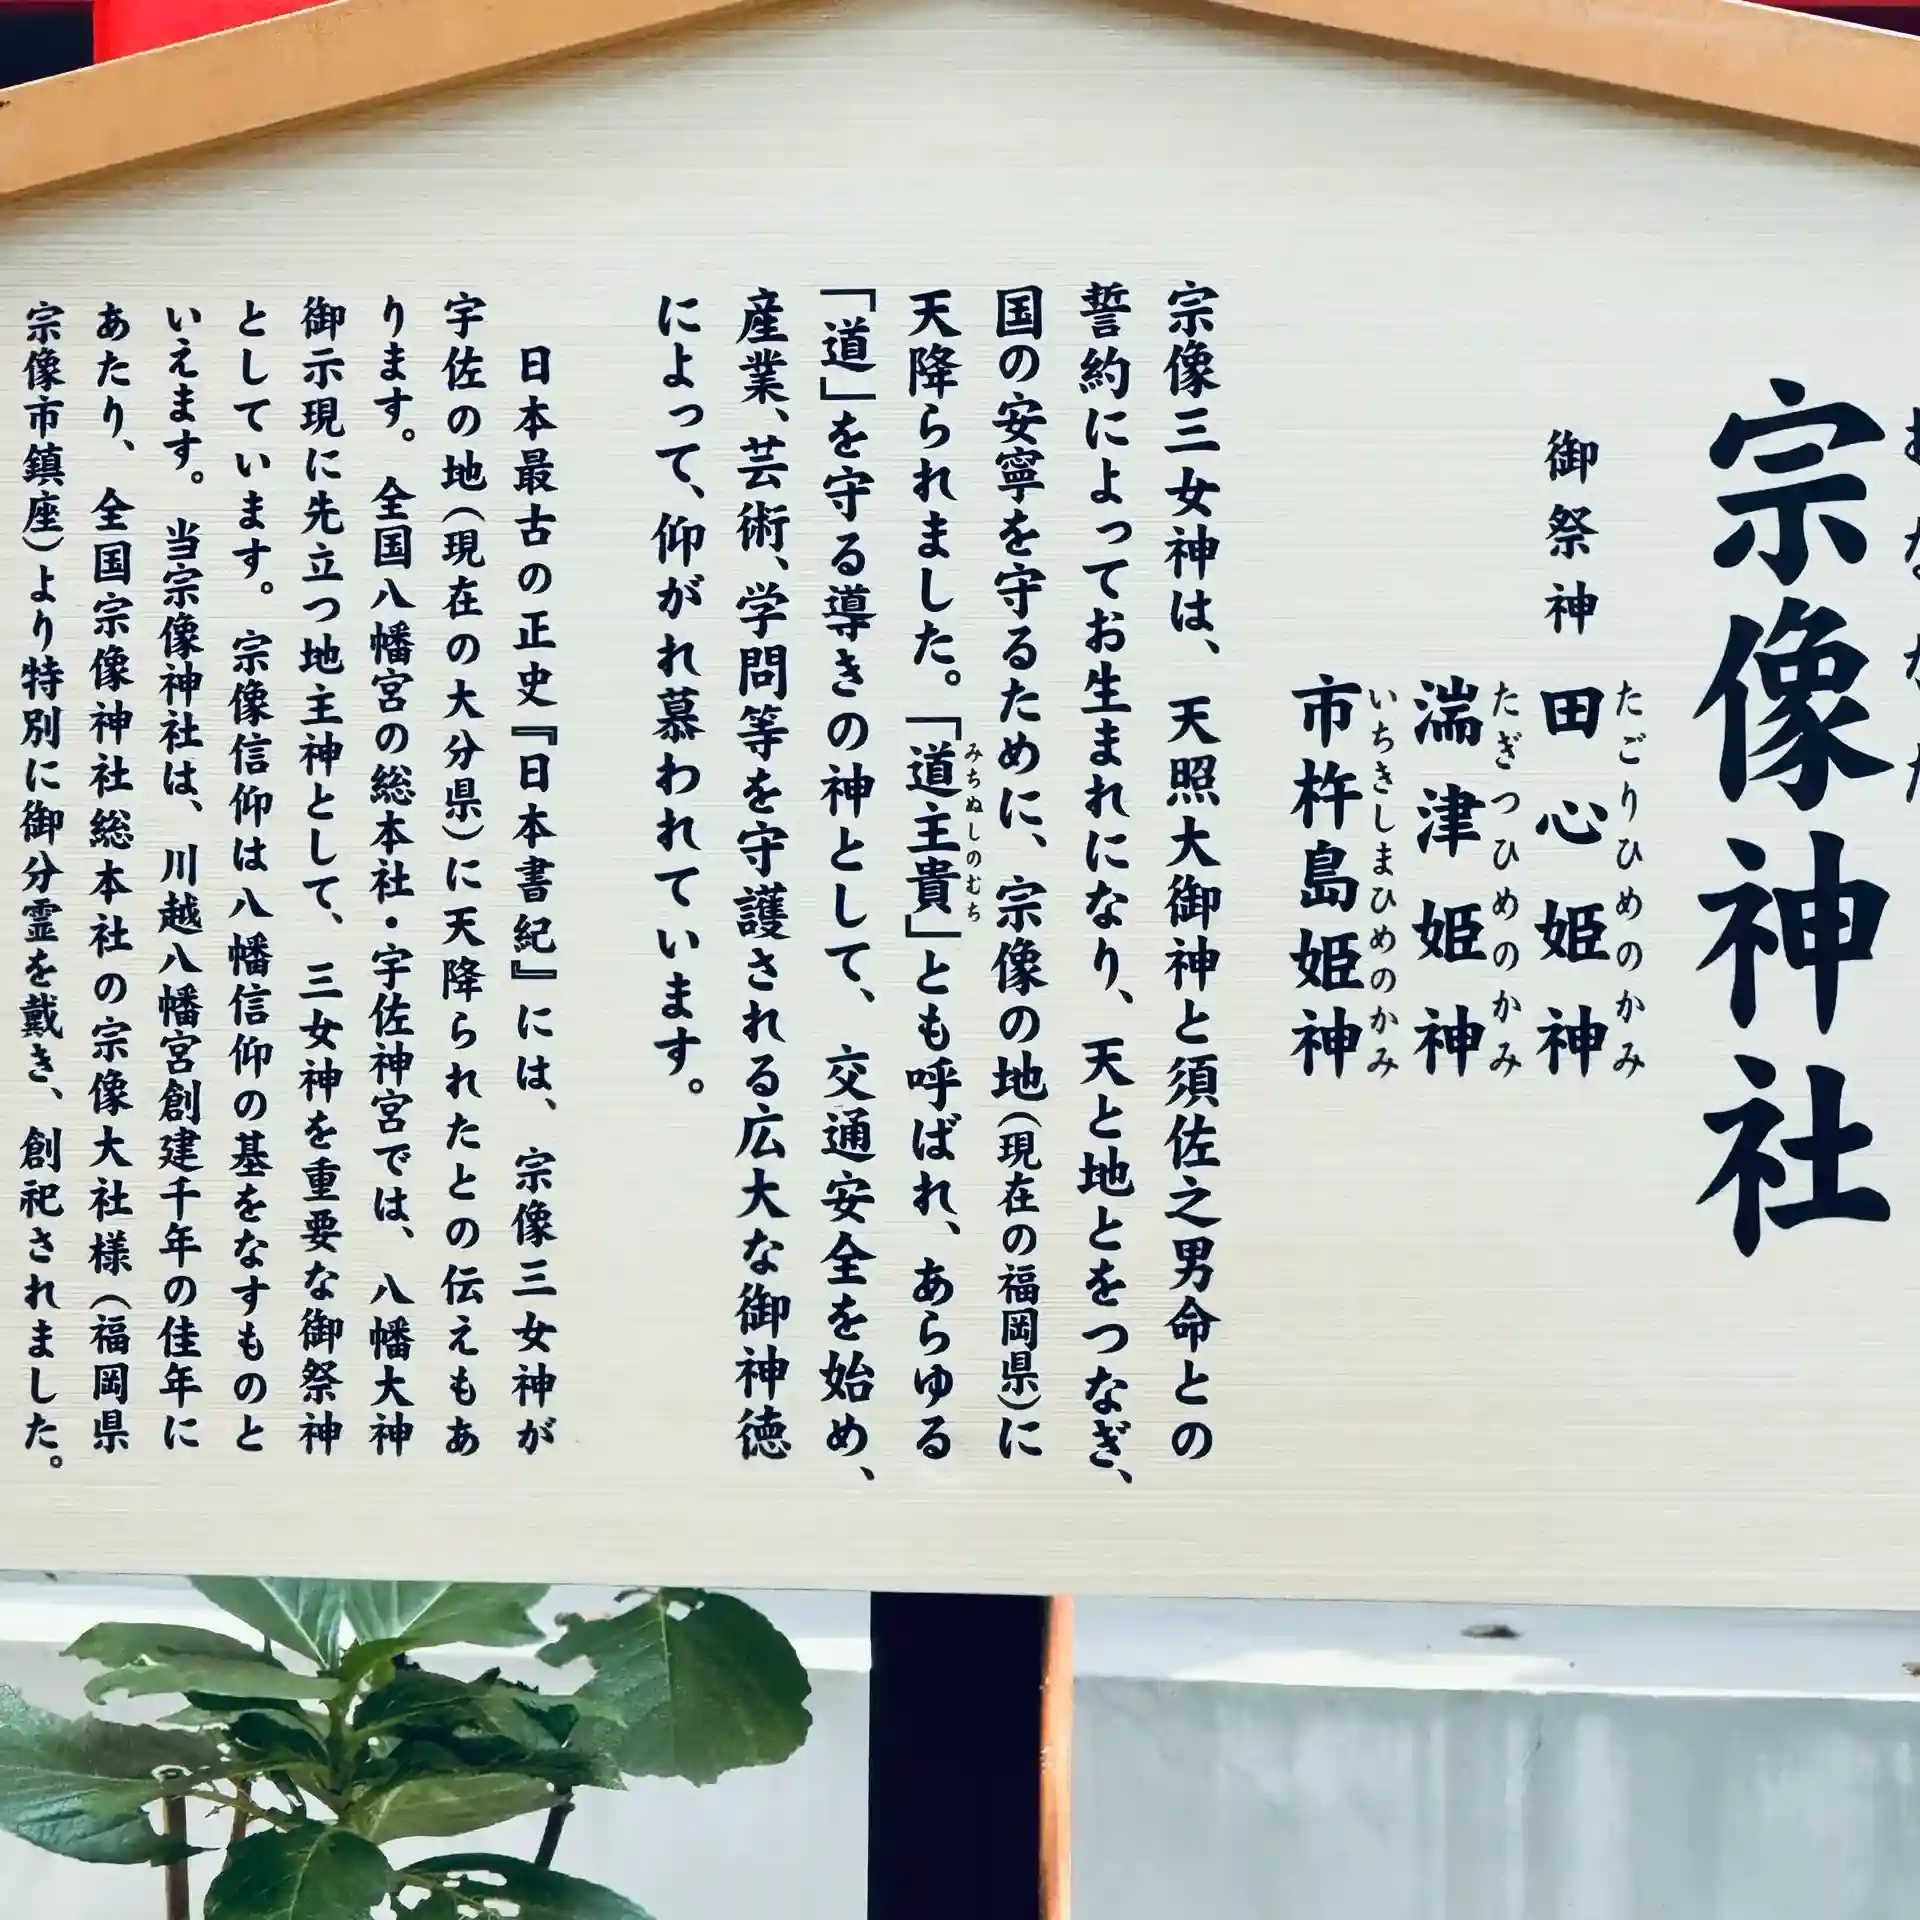 宗像神社
御祭神
たごりひめのかみ
田心姫神
たぎつひめのかみ
湍津姫神
いちきしまひめのかみ
市杵島姫神
宗像三女神は、天照大御神と須佐之男命との
誓約によってお生まれになり、天と地とをつなぎ、
国の安寧を守るために、宗像の地(現在の福岡県)に
天降られました。「道主貴」とも呼ばれ、あらゆる
みちぬしのむち
「道」を守る導きの神として、交通安全を始め、
産業、芸術、学問等を守護される広大な御神徳
によって、仰がれ慕われています。
日本最古の正史『日本書紀』には、宗像三女神が
宇佐の地(現在の大分県)に天降られたとの伝えもあ
ります。全国八幡宮の総本社・宇佐神宮では、八幡大神
御示現に先立つ地主神として、三女神を重要な御祭神
としています。宗像信仰は八幡信仰の基をなすものと
いえます。当宗像神社は、川越八幡宮創建千年の佳年に
あたり、全国宗像神社総本社の宗像大社様(福岡県
宗像市鎮座)より特別に御分霊を戴き、創祀されました。